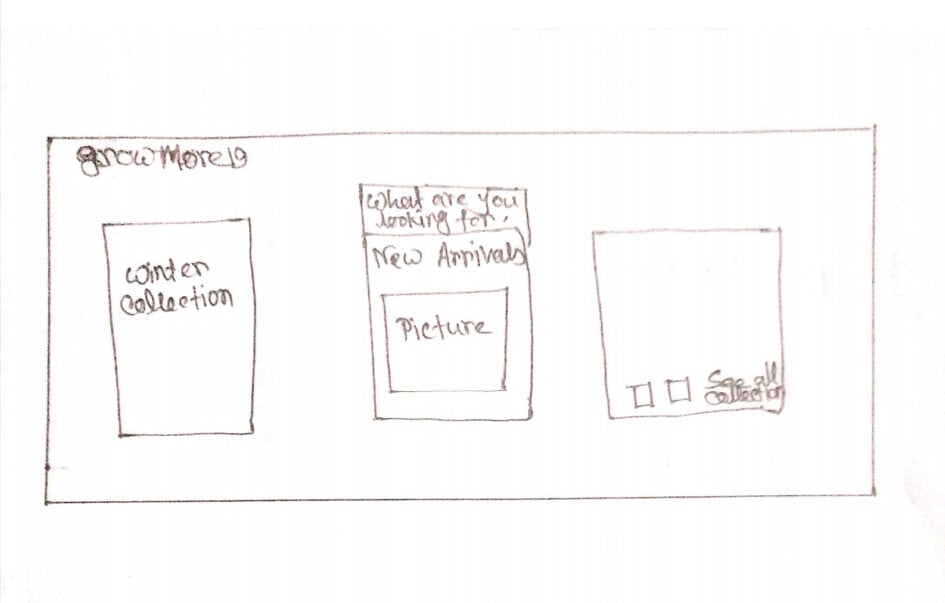 growMore19
Winter
Collection
What are you
looking for,
New Arrivals
Picture
See all
Collection